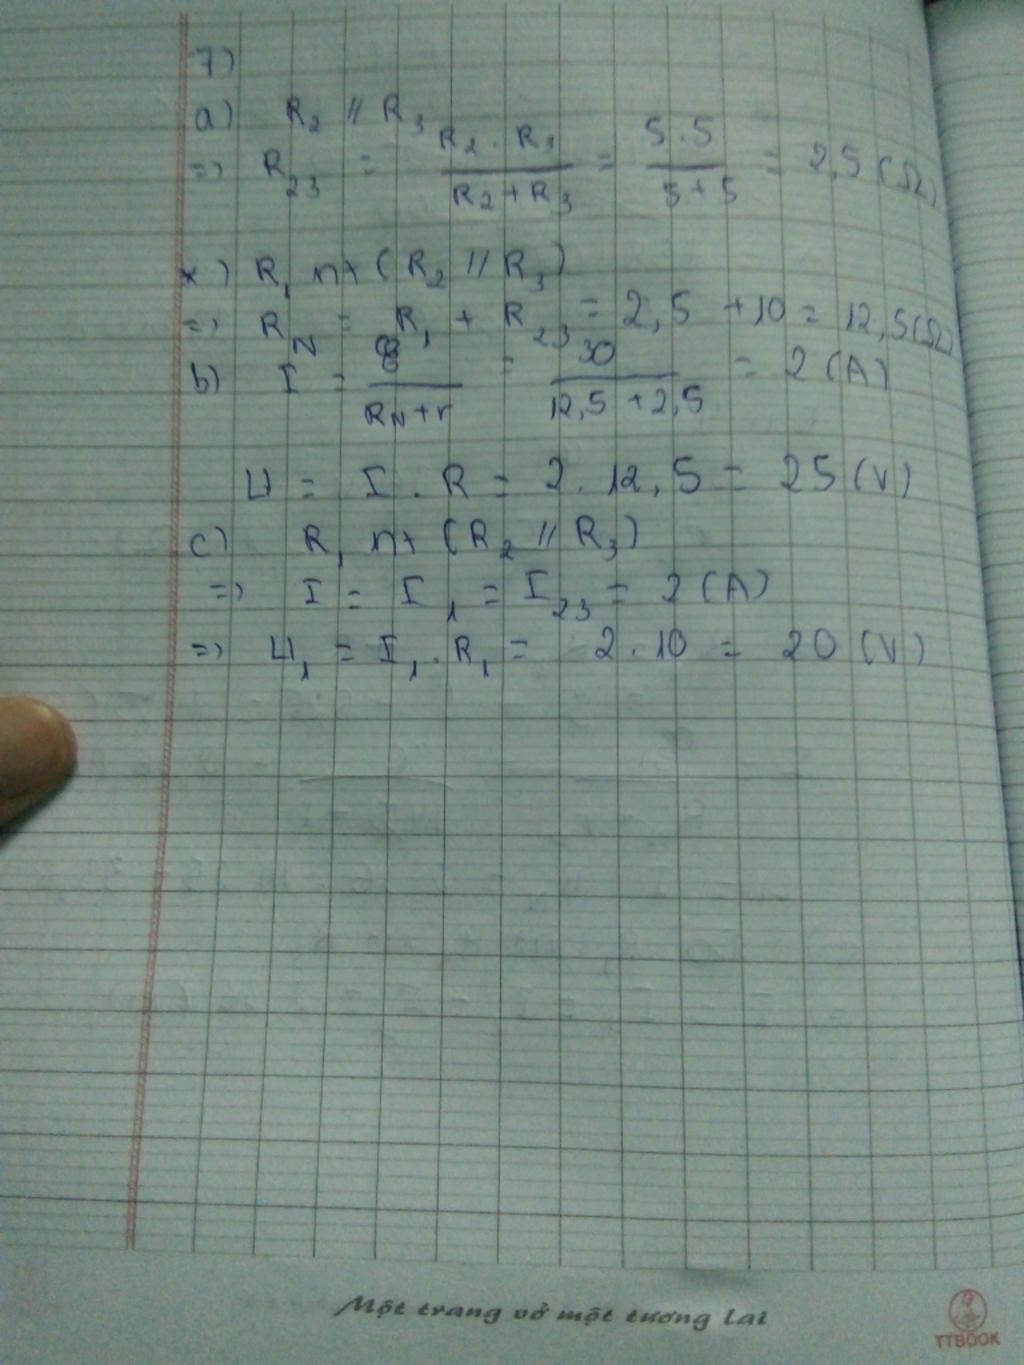 7)
a) R₂ // R₃
=> R₂₃ = R₂ . R₃ / R₂ + R₃ = 5 . 5 / 5 + 5 = 2,5 (Ω)
*) R₁ nt (R₂ // R₃)
=> R_N = R₁ + R₂₃ = 2,5 + 10 = 12,5 (Ω)
b) I = ℰ / R_N + r = 30 / 12,5 + 2,5 = 2 (A)
U = I . R = 2 . 12,5 = 25 (V)
c) R₁ nt (R₂ // R₃)
=> I = I₁ = I₂₃ = 2 (A)
=> U₁ = I₁ . R₁ = 2 . 10 = 20 (V)
Một trang vở một tương lai
TTBOOK